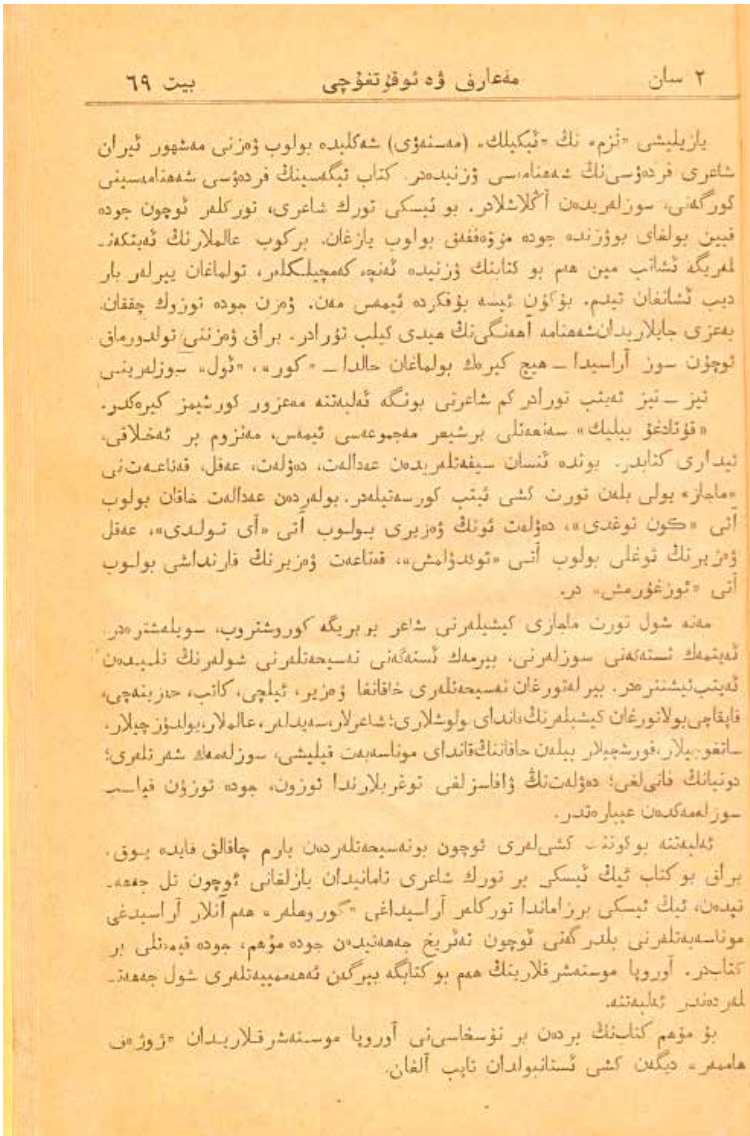 ٢ سان مەعارف ۋە ئوقۇتغۇچى بيت ٦٩
يازيليشى «نُزم» نڭ «ئيكيلك» (مەسنەۋى) شەكليدە بولوب ۋەزنى مەشهور ئيران
شاعرى فردەۋسى‌نڭ شەهنامەسى ۋزنيدەدر. كتاب ئيگەسينڭ فردەۋسى شەهنامەسينى
كورگەنى، سوزلەريدەن آڭلاشلادر. بو ئيسكى تورك شاعرى، توركلەر ئوچون جودە
قيين بولغاى بوۋزندە جودە مۇۋەففەق بولوب يازغان. بركوب عالملارنڭ ئەيتكەنـ
لەريگە ئشانب مين هەم بو كتابنڭ ۋزنيدە ئەنچە كەمچيلكلەر، تولماغان ييرلەر بار
ديب ئشانغان ئيدم. بۇكۇن ئيسە بۇفكردە ئيمەس مەن. ۋەزن جودە توزوك چققان.
بەعزى جايلاريدان‌شەهنامە آهەنگى‌نڭ هيدى كيلب تۇرادر. براق ۋەزننى تولدورماق
ئوچۇن سوز آراسيدا ــ هيچ كيرەك بولماغان حالدا ــ «كور»، «ئول» سوزلەرينى
تيز ــ تيز ئەيتب تورادر كم شاعرنى بونگە ئەلبەتتە مەعزور كورشيمز كيرەكدر.
«قۇتادغۇ بيليك» سەنعەتلى برشيعر مەجموعەسى ئيمەس، مەنزوم بر ئەخلاقى،
ئيدارى كتابدر. بوندە ئنسان سيفەتلەريدەن عەدالەت، دەۋلەت، عەقل، قەناعەت‌نى
«ماجاز» يولى بلەن تورت كشى ئيتب كورسەتيلەدر. بولەردەن عەدالەت خاقان بولوب
آتى «كون توغدى»، دەۋلەت ئونڭ ۋەزيرى بـولـوب آتى «آى تـولـدى»، عەقل
ۋەزيرنڭ ئوغلى بولوب آتـى «ئوگدۇلمش»، قەناعەت ۋەزيرنڭ قارنداشى بولـوب
آتى «ئوزغۇرمش» در.
مەنە شول تورت ماجازى كيشيلەرنى شاعر بربريگە كوروشتروب، سويلەشترەدر.
ئەيتمەك ئستەگەنى سوزلەرنى، بيرمەك ئستەگەنى نەسيحەتلەرنى شولەرنڭ تليـدەن
ئەيتب‌ئيشتترەدر. بيرلەتورغان نەسيحەتلەرى خاقانغا ۋەزير، ئيلچى، كاتب، حەزينەچى،
قاپقاچى‌بولاتورغان كيشيلەرنڭ‌قانداى بولوشلارى؛ شاعرلار، سەيدلەر، عالملار، يولدۇزچيلار،
ساتغوچيلار، قورشچيلار بيلەن خاقاننڭ‌قانداى موناسەبەت قيليشى، سوزلەمەك شەرتلەرى؛
دونيانڭ فانى‌لغى؛ دەۋلەت‌نڭ ۋافاسزلغى توغريلارندا ئوزون، جودە توزۇن قيافەت
سوزلەمەكدەن عيبارەتدر.
ئەلبەتتە بوكوننڭ كشى‌لەرى ئوچون بونەسيحەتلەردەن يارم چاقالق فايدە يـوق.
براق بو كتاب ئيڭ ئيسكى بر تورك شاعرى تامانيدان يازلغانى ئوچون تل جەهەـ
تيدەن، ئيڭ ئيسكى برزاماندا توركلەر آراسيداغى «گوروهلەر» هەم آنلار آراسيدغى
موناسەبەتلەرنى بلدرگەنى ئوچون تەئريخ جەهەتيدەن جودە مۇهم، جودە قيمەتلى بر
كتابدر. آوروپا موستەشرقلارينڭ هەم بو كتابگە بيرگەن ئەهەممييەتلەرى شول جەهەتـ
لەردەندر ئەلبەتتە.
بۇ مۇهم كتابنڭ بردەن بر نۇسخاسى‌نى آوروپا موستەشرقـلاريـدان «ژوژەف
هاممەر» ديگەن كشى ئستانبولدان تاپب آلغان.